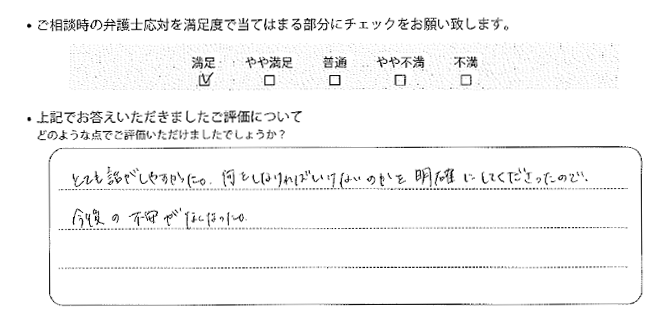 ・ご相談時の弁護士応対を満足度で当てはまる部分にチェックをお願い致します。
満足 やや満足 普通 やや不満 不満
☑ □ □ □ □
・上記でお答えいただきましたご評価について
どのような点でご評価いただけましたでしょうか？
とても話がしやすかった。何をしなければいけないのかを明確にしてくださったので、
今後の不安がなくなった。